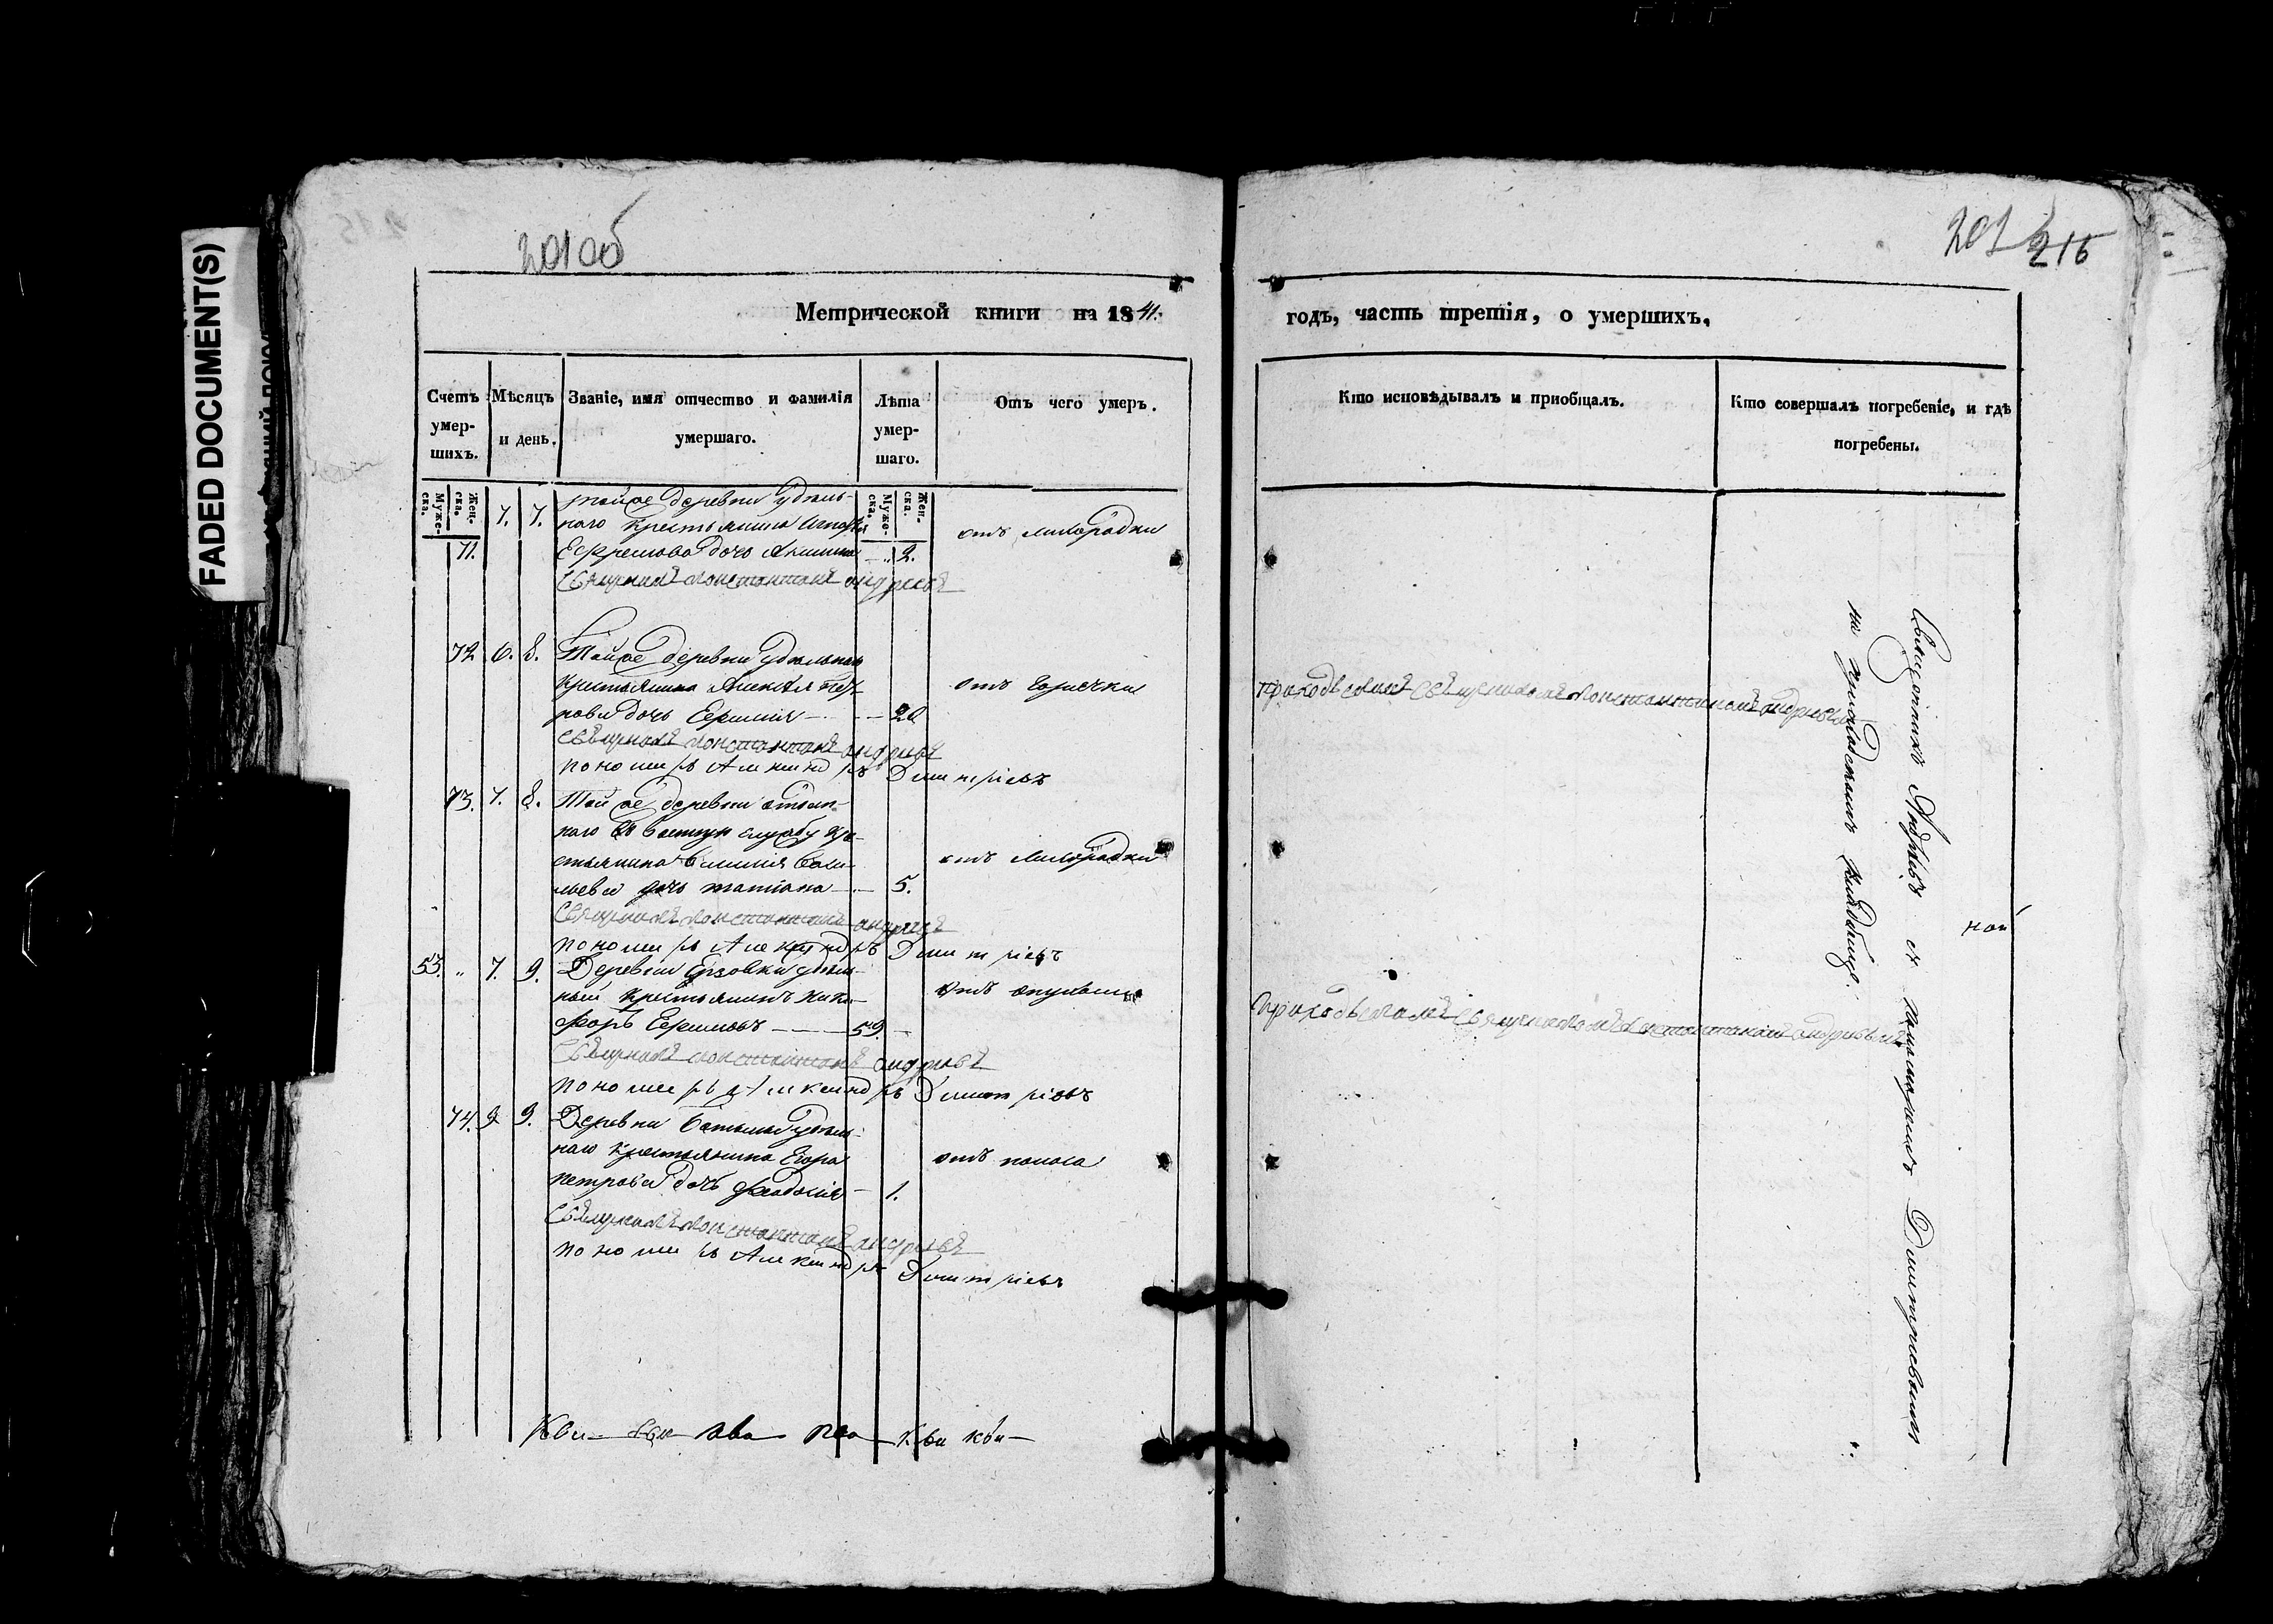 FADED DOCUMENT(S)
201об
Метрической книги на 1841.
Счетъ умер-
шихъ.
Мѣсяцъ
и день.
Званіе, имя отчество и фамилія
умершаго.
Лѣта
умер-
шаго.
Отъ чего умеръ.
Муже-
ска.
Жен-
ска.
Муже-
ска.
Жен-
ска.
71. 7. 7. тойже деревни удѣль-
наго крестьянина
Ефремова дочь 2.
отъ лихорадки
Священникъ Константинъ Андреевъ
72 6. 8. Тойже деревни удѣльнаго
крестьянина Алексѣя Пет-
рова дочь 20
отъ горячки
Священникъ Константинъ Андреевъ
пономарь Александръ Димитріевъ
73. 7. 8. Тойже деревни отдан-
наго въ военную службу кре-
стьянина Василія Василь-
ева дочь татіана 5.
отъ лихорадки
Священникъ Константинъ Андреевъ
пономарь Александръ Димитріевъ
53. " 7. 9. Деревни Ерзовки удѣль-
ный крестьянинъ Ники-
форъ Ефимовъ 59.
отъ опухоли
Священникъ Константинъ Андреевъ
пономарь Александръ Димитріевъ
74. 9 9. Деревни удѣль-
наго крестьянина Егора
петрова дочь Феодосія 1.
отъ поноса
Священникъ Константинъ Андреевъ
пономарь Александръ Димитріевъ
201 216
годъ, часть третія, о умершихъ.
Кто исповѣдывалъ и пріобщалъ.
Кто совершалъ погребеніе, и гдѣ
погребены.
приходскимъ священникомъ Константиномъ Андреевымъ
приходскимъ священникомъ Константиномъ Андреевымъ
Священникъ Андреевъ съ пономаремъ Димитріевымъ
на приходскомъ кладбище.
ной